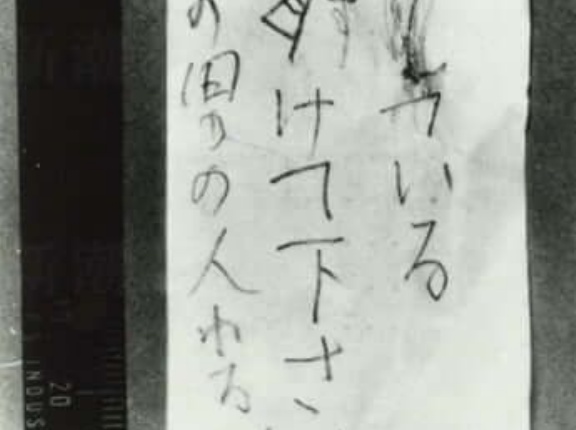 ている
けて下さ
の男の人わる
20
INDUS